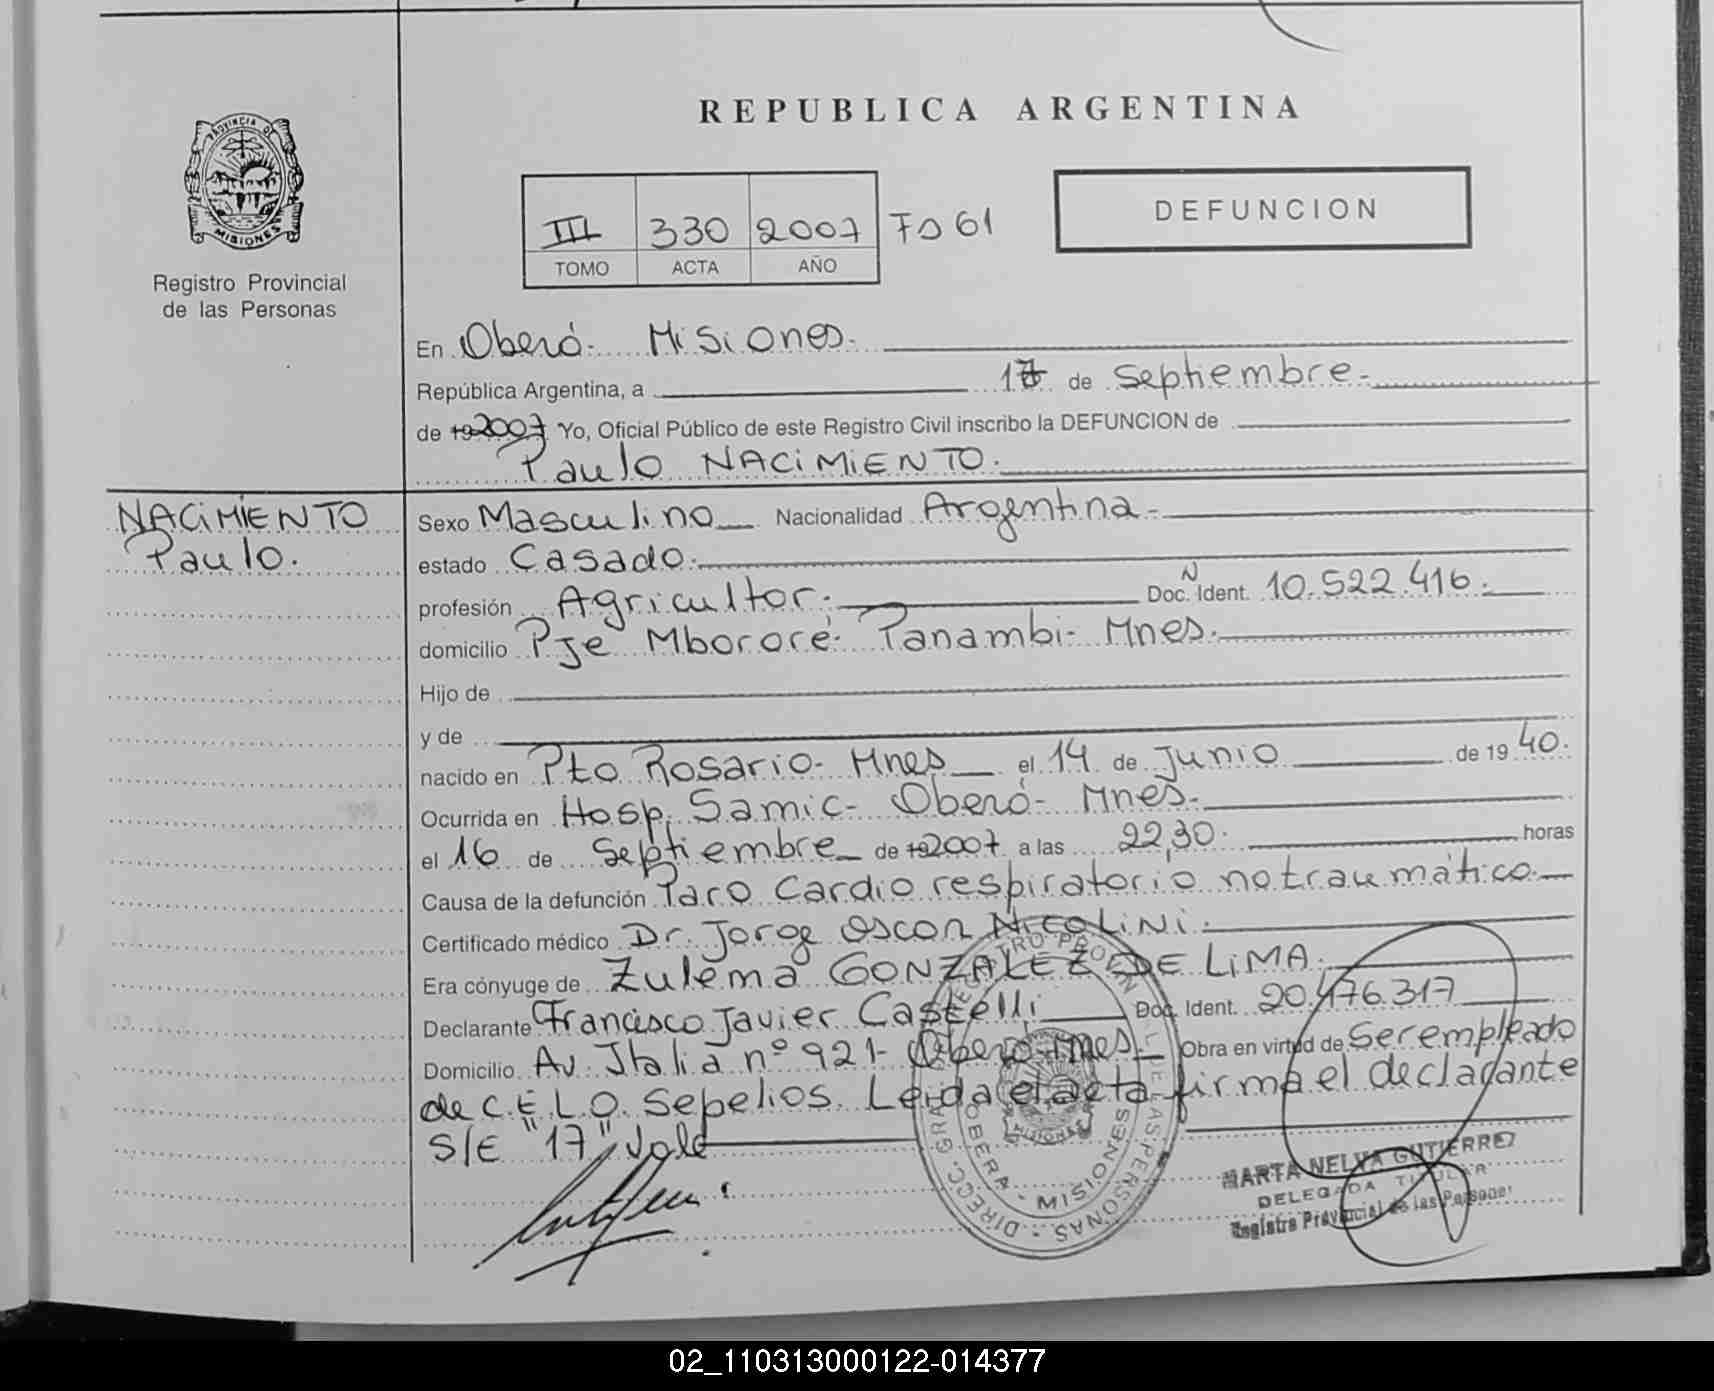 REPUBLICA ARGENTINA
PROVINCIA DE
MISIONES
Registro Provincial
de las Personas
III 330 2007 Fo 61
TOMO ACTA AÑO
DEFUNCION
En Oberá. Misiones.
República Argentina, a 17 de Septiembre.
de 19 2007 Yo, Oficial Público de este Registro Civil inscribo la DEFUNCION de
Paulo NACIMIENTO.
NACIMIENTO
Paulo.
Sexo Masculino Nacionalidad Argentina.
estado Casado.
profesión Agricultor. Doc. N Ident. 10.522.416.
domicilio Pje Mbororé. Panambi. Mnes.
Hijo de
y de
nacido en Pto Rosario. Mnes el 14 de Junio de 19 40.
Ocurrida en Hosp. Samic- Oberá- Mnes.
el 16 de Septiembre de 19 2007 a las 22,30. horas
Causa de la defunción Paro Cardio respiratorio no traumático.
Certificado médico Dr. Jorge Oscar NICOLINI.
Era cónyuge de Zulema GONZALEZ DE LIMA.
Declarante Francisco Javier Castelli Doc. Ident. 20.476.317
Domicilio Av. Italia nº 921- Oberá-Mnes. Obra en virtud de Ser empleado
de C.E.L.O. Sepelios. Leida el acta firma el declarante
S/E "17" Vale
REGISTRO PROVINCIAL DE LAS PERSONAS - DIRECC. GRAL.
OBERA - MISIONES
MISIONES
MARTA NELVA GUTIERREZ
DELEGADA TITULAR
Registro Provincial de las Personas
02_110313000122-014377